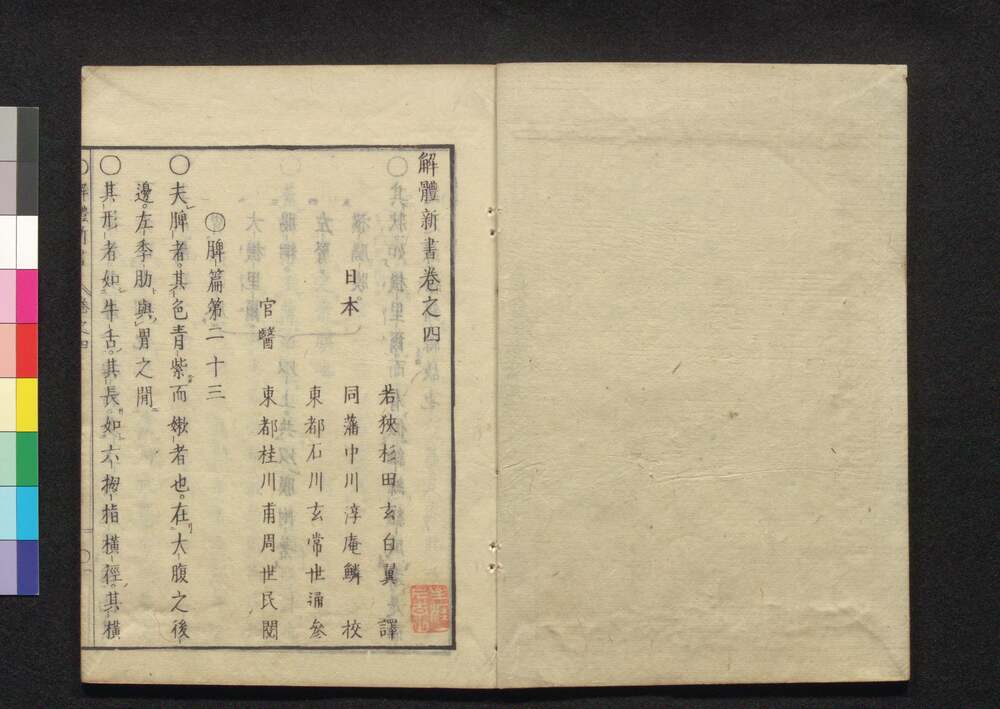 解體新書卷之四
若狹杉田玄白翼 譯
日本 同藩中川淳庵鱗 校
東都石川玄常世通參
官醫 東都桂川甫周世民閱
〇脾篇第二十三
〇夫脾者。其色青紫而嫩者也。在大腹之後
邊。左季肋與胃之閒
〇其形者如牛舌。其長如六搩指橫徑。其橫
解體新書 卷之四